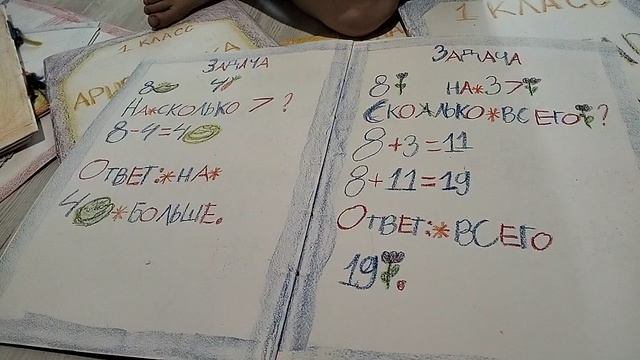 1 КЛАСС
1 КЛАСС
ЗАДАЧА
8 4
НА*СКОЛЬКО > ?
8-4=4
ОТВЕТ:*НА*
4 *БОЛЬШЕ.
ЗАДАЧА
8 НА*3>
СКОЛЬКО*ВСЕГО ?
8+3=11
8+11=19
ОТВЕТ:*ВСЕГО
19 .